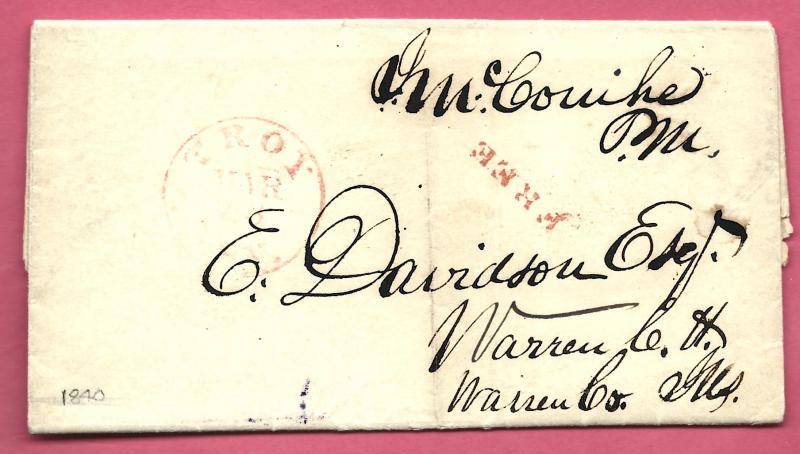 J. McConihe
P.M.
TROY
MAR
FREE
E. Davidson Esqr.
Warren C. H.
Warren Co. Ills.
1840